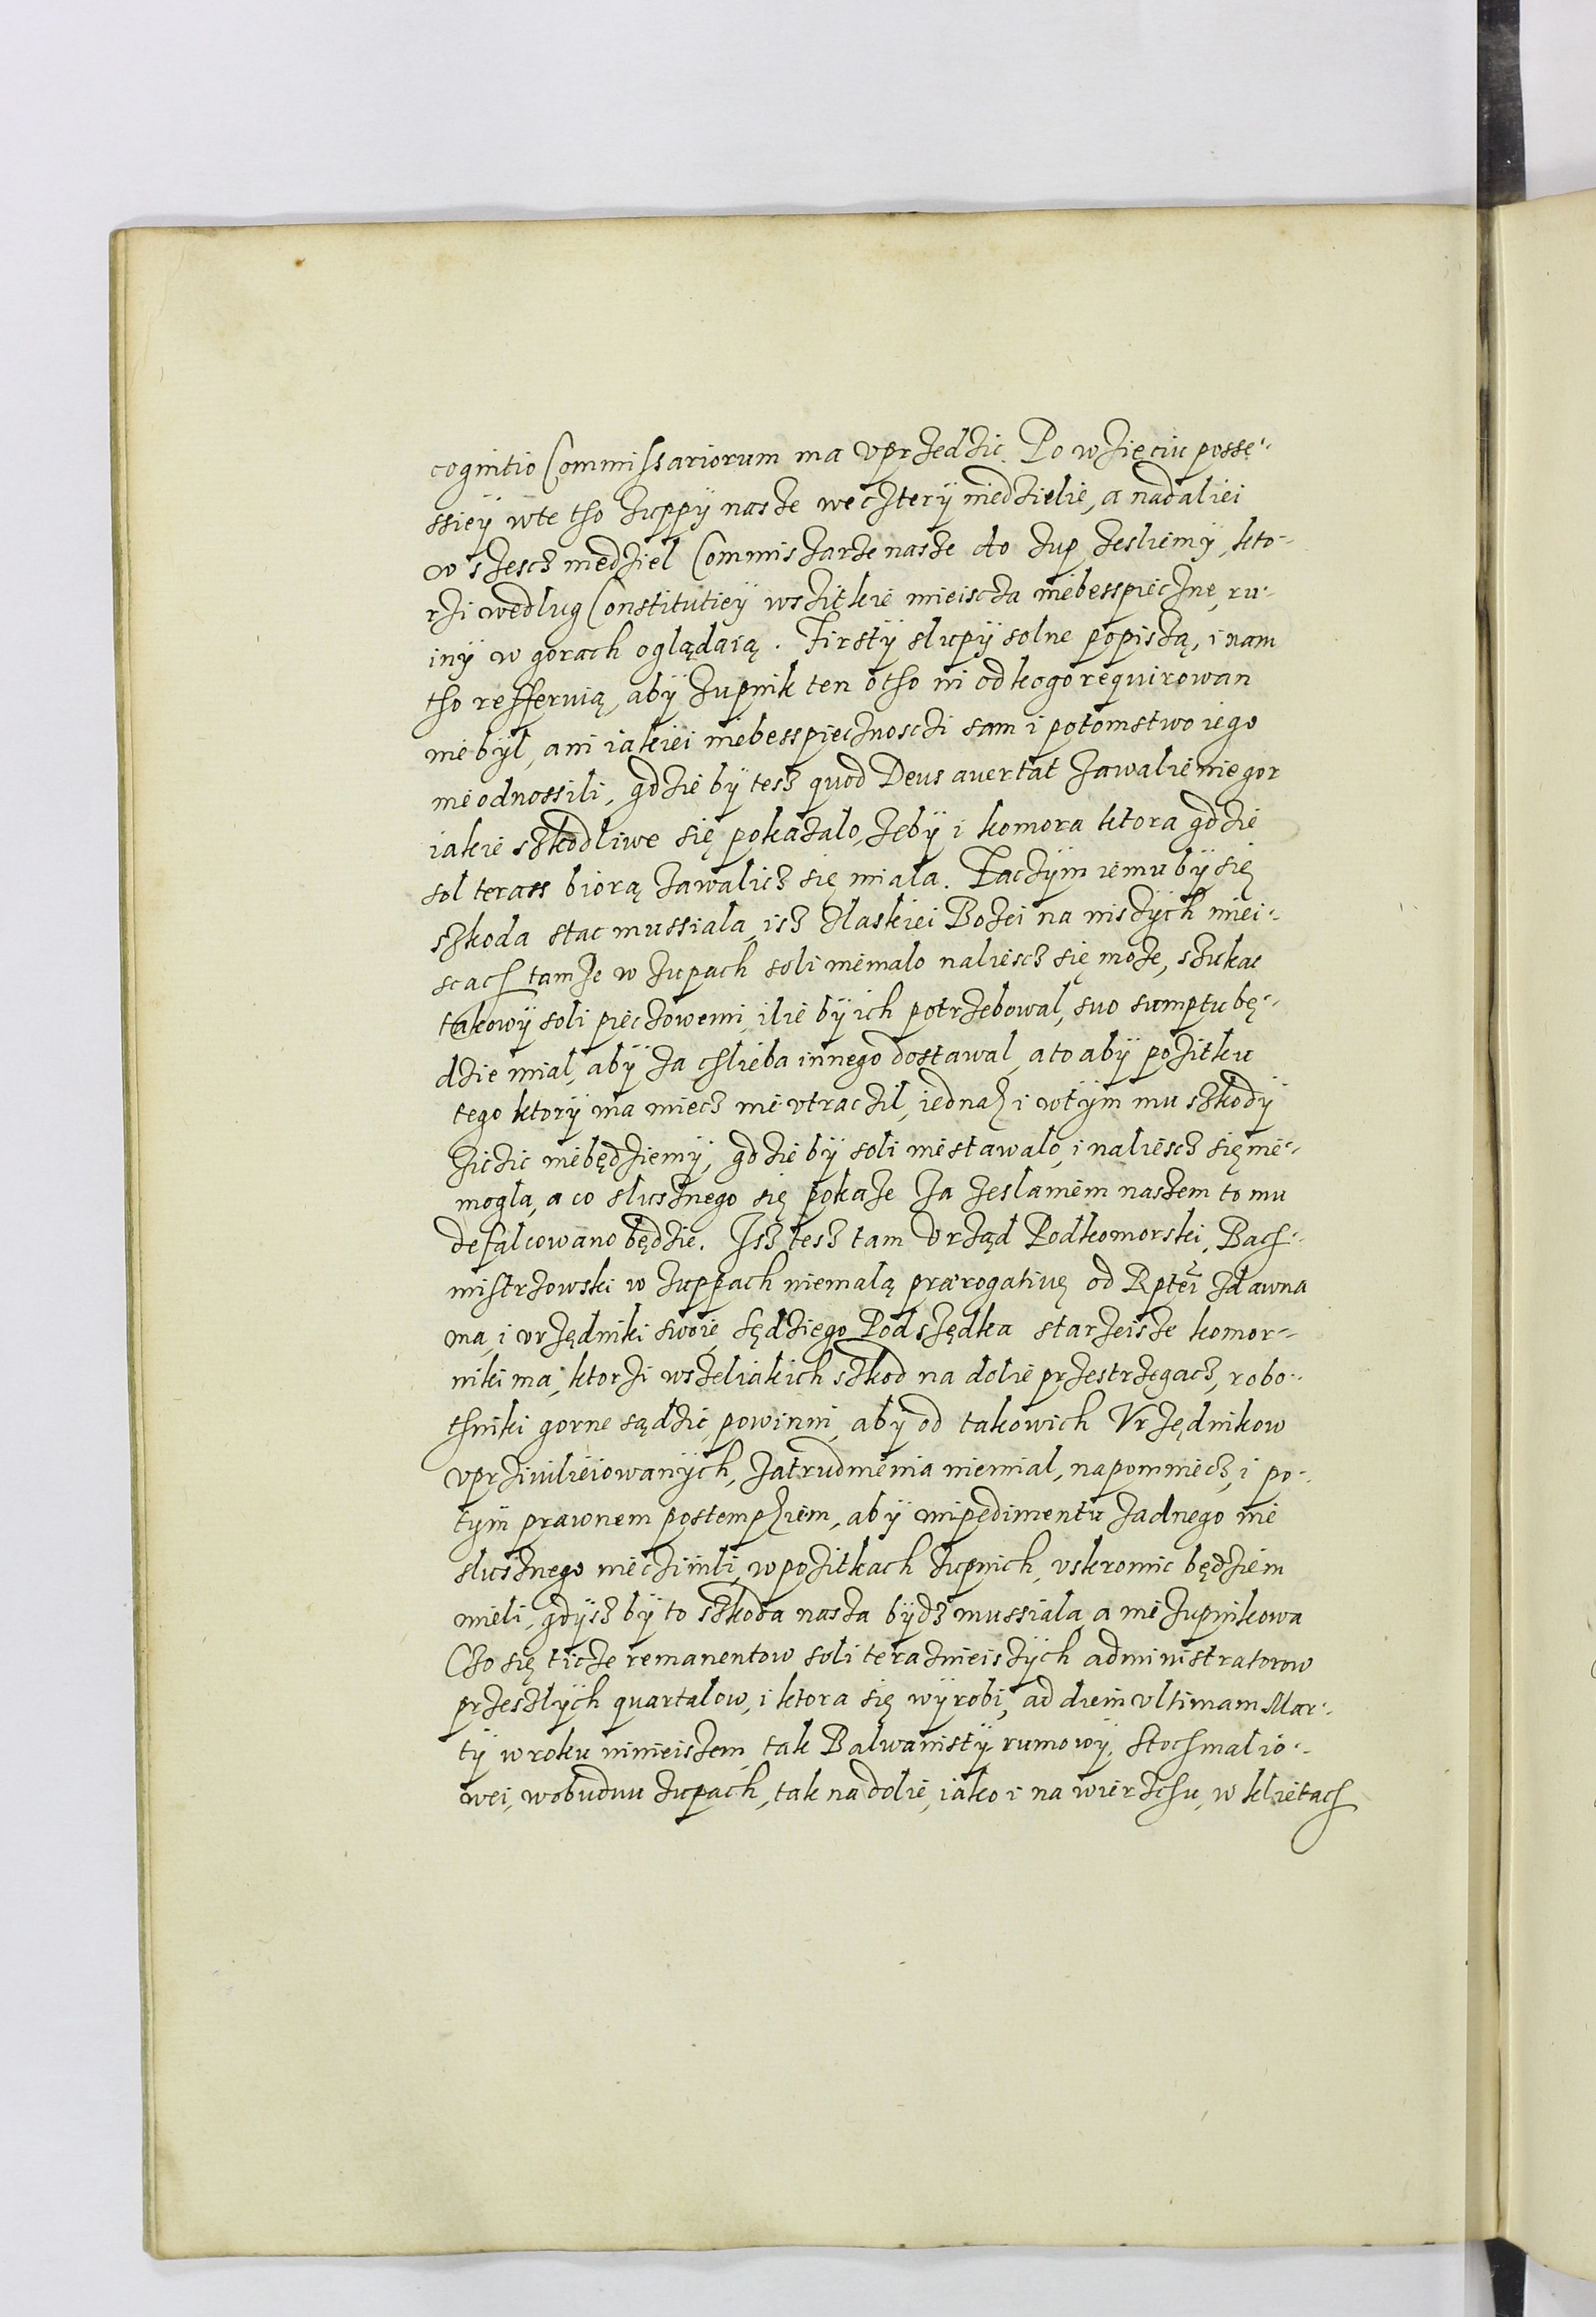 cognitio Commissariorum ma vprzedzic. Po wzięciu posse-
ssiey wte tho zuppÿ nasze we czterÿ niedzielie, a nadaliei
w szescz niedziel Commiszarze nasze do zup zesliemÿ, kto-
rzi wedlug Constitutieÿ wszitkie mieiscza niebesspieczne, ru-
inÿ w gorach oglądaią. Firstÿ slupÿ solne popiszą, i nam
tho referuią, abÿ zupnik ten otho ni od kogo requirowan
nie bÿl, ani iakiei niebesspiecznosczi sam i potomstwo iego
nie odnossili, gdzie bÿ tesz quod Deus auertat zawalienie gor
iakie szkodliwe się pokazalo, żebÿ i komora ktora gdzie
sol terass biorą zawalicz się miala. Zaczÿm iemu bÿ się
szkoda stac mussiala, isz zlaskiei Bozei na niszÿch miei-
scach tamże w zupach soli niemalo naliescz się może, szukac
takowÿ soli pieczowemi ilie bÿ ich potrzebowal, suo sumptu bę-
dzie mial, abÿ za chlieba innego dostawal, a to abÿ pozitku
tego ktorÿ ma miecz nie vtraczil, iednak i wtÿm mu szkodÿ
ziczic niebędziemÿ, gdzie bÿ soli nie stawalo, i naliescz się nie-
mogla, a co slusznego się pokaże za zeslaniem naszem to mu
defalcowano będzie. Isz tesz tam Vrząd Podkomorski, Bach-
mistrzowski w zuppach niemalą praerogatiuę od Rptei zdawna
ma, i vrzędniki swoie Sędziego Podszędka starzeisze komor-
niki ma, ktorzi wszeliakich szkod na dolie przestrzegacz, robo-
thniki gorne sądzic powinni, abÿ od takowich Vrzędnikow
vprziuilieiowanÿch, zatrudnienia niemial, napomniecz, i po-
tÿm prawnem postempkiem, abÿ impedimentu żadnego nie
slusznego nie czinili, w pozitkach zupnich, vskromic będziem
mieli, gdÿsz bÿ to szkoda nasza bÿdz mussiala, a nie zupnikowa
Czo się ticze remanentow soli terazniejszÿch administratorow
przeszlÿch quartalow, i ktora się wÿrobi, ad diem vltimam Mar-
tÿ w roku ninieiszem, tak Balwanistÿ rumowÿ, Stochmalio-
wei, wobudwu zupach, tak na dolie, iako i na wierzchu, w klietach